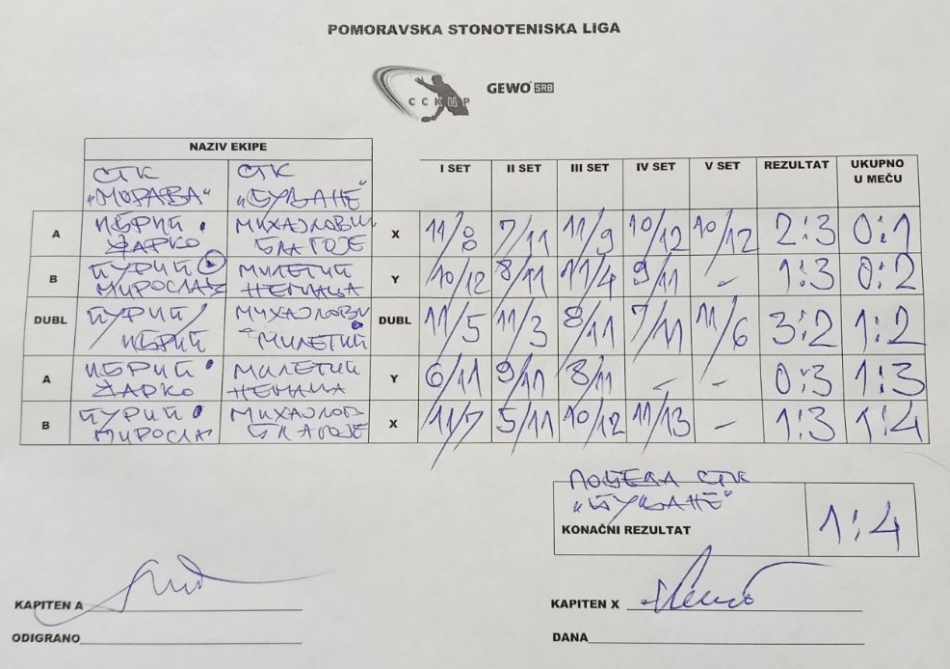 POMORAVSKA STONOTENISKA LIGA
ССКЦР GEWO SRB
NAZIV EKIPE
I SET II SET III SET IV SET V SET REZULTAT UKUPNO U MEČU
СТК „МОРАВА“ СТК
A ЖАРКО МИХАЈЛОВИЋ БЛАГОЈЕ X 11/8 7/11 11/9 10/12 10/12 2:3 0:1
B МИРОСЛАВ МИЛЕТИЋ НЕМАЊА Y 10/12 8/11 11/4 9/11 - 1:3 0:2
DUBL МИЛЕТИЋ DUBL 11/5 11/3 8/11 7/11 11/6 3:2 1:2
A ЖАРКО МИЛЕТИЋ НЕМАЊА Y 6/11 9/11 8/11 - - 0:3 1:3
B МИРОСЛАВ МИХАЈЛОВ БЛАГОЈЕ X 11/7 5/11 10/12 11/13 - 1:3 1:4
ПОБЕДА СТК
KONAČNI REZULTAT 1:4
KAPITEN A
KAPITEN X
ODIGRANO
DANA